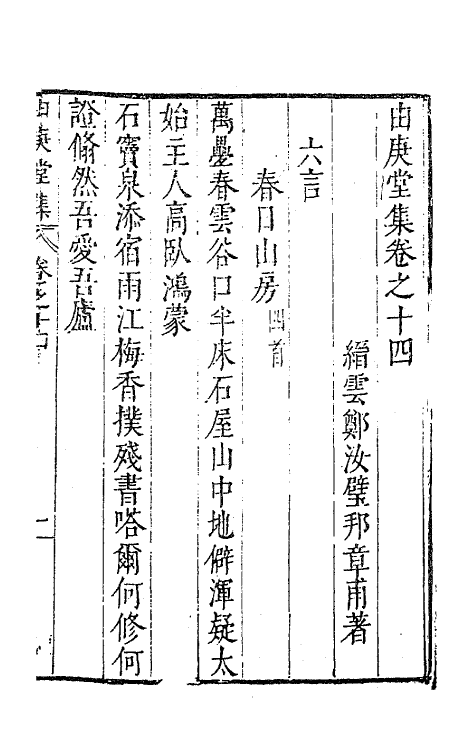 由庚堂集卷之十四
縉雲鄭汝璧邦章甫著
六言
春日山房四首
萬疊春雲谷口半床石屋山中地僻渾疑太
始主人高臥鴻蒙
石竇泉添宿雨江梅香撲殘書嗒爾何修何
證翛然吾愛吾廬
由庚堂集 卷之十四 一